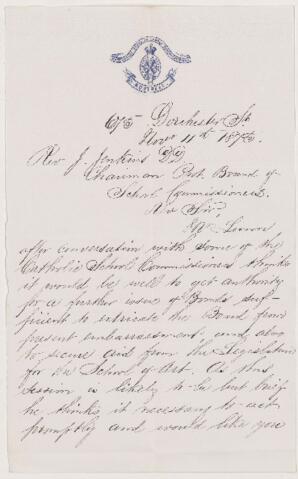 675 Dorchester St
Novr 11th 1875.
Rev J. Jenkins DD
Chairman Prot. Board of
School Commissioners.
Rev Sir,
Mr
after conversation with some of the
Catholic School Commissioners thinks
it would be well to get authority
for a further issue of Bonds suf-
ficient to extricate the Board from
present embarrassment and also
to secure aid from the Legislature
for the School of Art. As this
session is likely to be but brief
he thinks it necessary to act
promptly and would like you